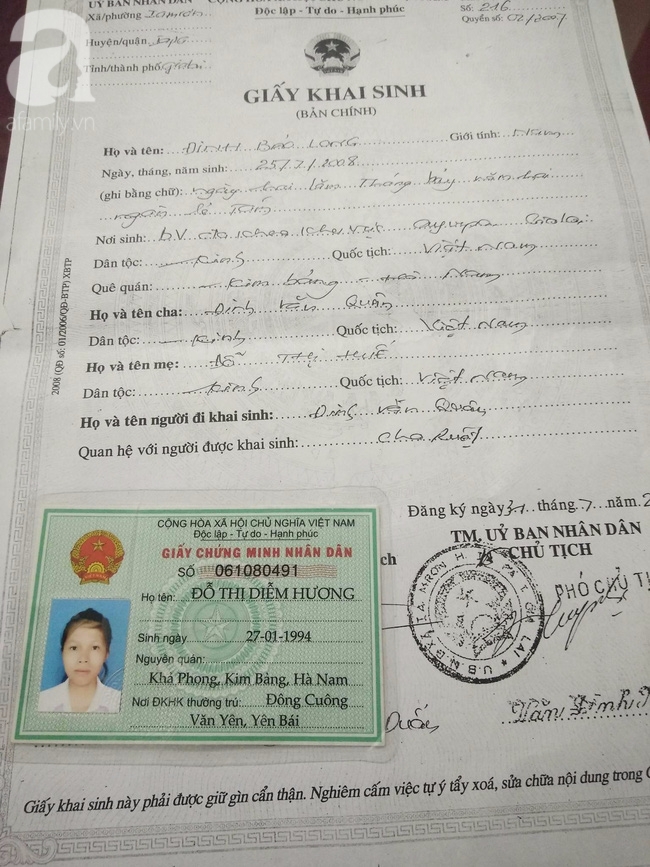 UỶ BAN NHÂN DÂN
Xã/phường
Số: 216
Độc lập - Tự do - Hạnh phúc
Quyển số: 01/2007
Huyện/quận
Tỉnh/thành phố
a
afamily.vn
GIẤY KHAI SINH
(BẢN CHÍNH)
Họ và tên: ĐINH BẢO LONG Giới tính:
Ngày, tháng, năm sinh: 25/7/2008
(ghi bằng chữ): ngày hai lăm Tháng bảy năm hai
ngàn lẻ Tám
Nơi sinh: b.V
Dân tộc: Kinh Quốc tịch: Việt Nam
Quê quán: Kim bảng Hà Nam
Họ và tên cha: Đinh văn Quân
Dân tộc: Kinh Quốc tịch: Việt Nam
Họ và tên mẹ: Đỗ THỊ HUẾ
Dân tộc: Kinh Quốc tịch: Việt Nam
Họ và tên người đi khai sinh: Đinh văn Quân
Quan hệ với người được khai sinh: Cha Ruột
2008 (QĐ số: 01/2006/QĐ-BTP) XBTP
Đăng ký ngày 31 tháng 7 năm 2
TM. UỶ BAN NHÂN DÂN
CHỦ TỊCH
PHÓ CHỦ TỊ
ịch
CỘNG HÒA XÃ HỘI CHỦ NGHĨA VIỆT NAM
Độc lập - Tự do - Hạnh phúc
GIẤY CHỨNG MINH NHÂN DÂN
SỐ 061080491
Họ tên: ĐỖ THỊ DIỄM HƯƠNG
Sinh ngày 27-01-1994
Nguyên quán:
Khả Phong, Kim Bảng, Hà Nam
Nơi ĐKHK thường trú: Đông Cuông
Văn Yên, Yên Bái
Quân
Giấy khai sinh này phải được giữ gìn cẩn thận. Nghiêm cấm việc tự ý tẩy xoá, sửa chữa nội dung trong G